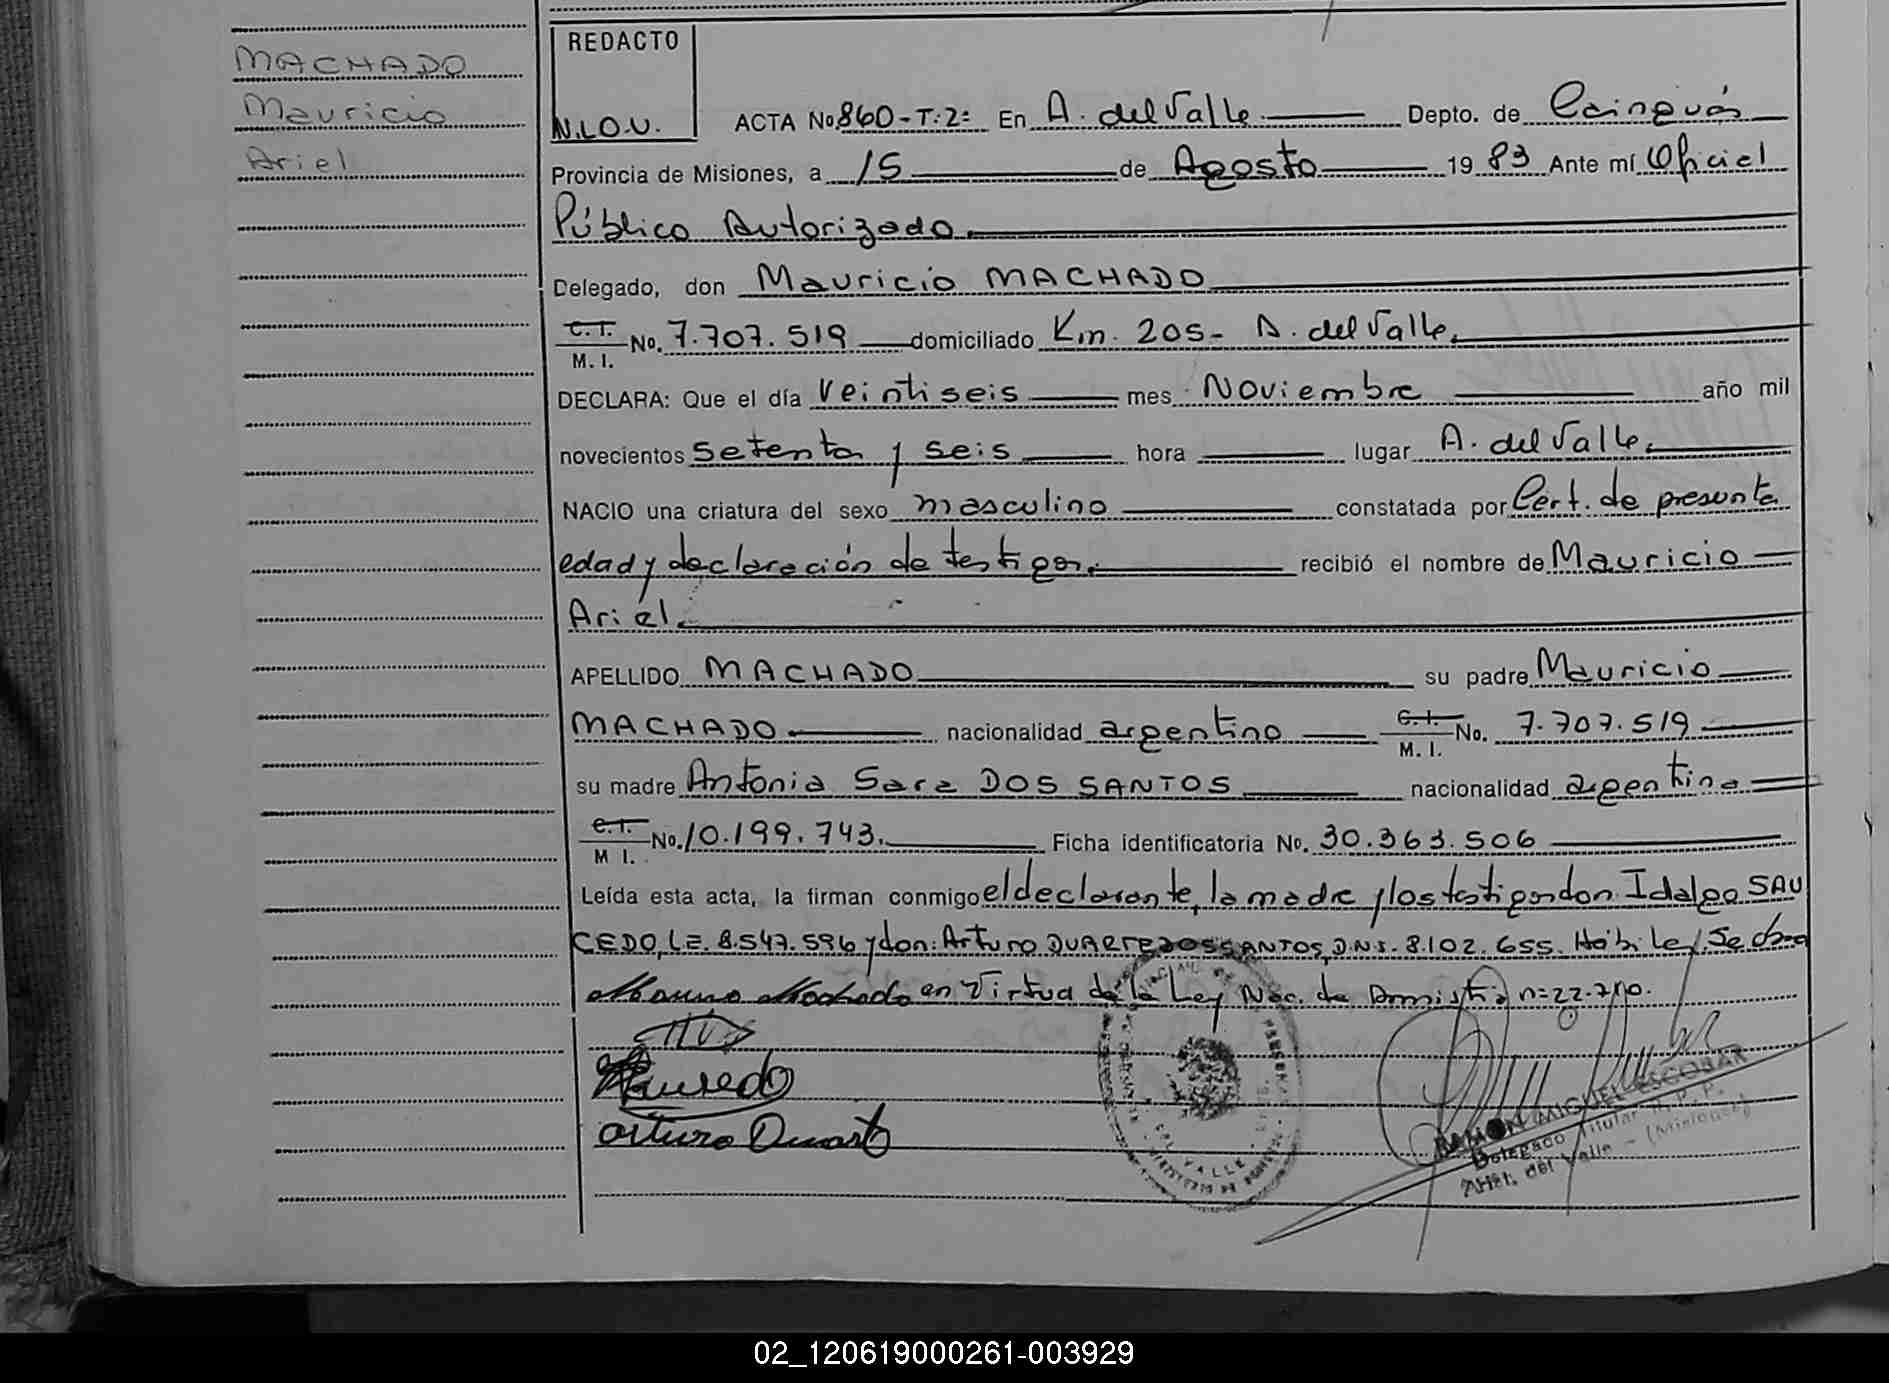 MACHADO
Mauricio
Ariel
REDACTO
N.L.O.U.
ACTA No. 860-T:2: En A. del Valle Depto. de Cainguás
Provincia de Misiones, a 15 de Agosto 1983 Ante mí Oficial
Público Autorizado.
Delegado, don Mauricio MACHADO
C.I. M. I. No. 7.707.519 domiciliado Km. 205- A. del Valle.
DECLARA: Que el día veintiseis mes Noviembre año mil
novecientos setenta y seis hora lugar A. del Valle.
NACIO una criatura del sexo masculino constatada por Cert. de presunta
edad y declaración de testigos. recibió el nombre de Mauricio
Ariel.
APELLIDO MACHADO su padre Mauricio
MACHADO nacionalidad argentino C.I. M. I. No. 7.707.519
su madre Antonia Sara DOS SANTOS nacionalidad argentina
C.I. M I. No. 10.199.743. Ficha identificatoria No. 30.363.506
Leída esta acta, la firman conmigo el declarante, la madre y los testigos don Idalgo SAU
CEDO, L.E. 8.547.596 y don: Arturo DUARTE DOS SANTOS, D.N.I. 8.102.655. Hábiles. Se obra
en Virtud de la Ley Nac. de Amnistia n=22.710.
Arturo Duarte
RAMON MIGUEL ESCOBAR
Delegado Titular R.P.P.
Arist. del Valle - (Misiones)
DEL VALLE
02_120619000261-003929